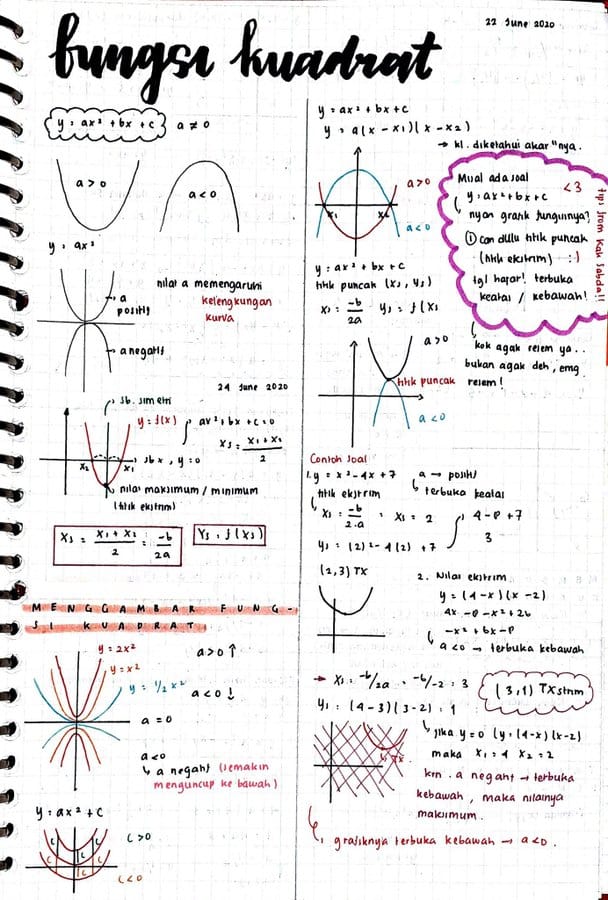 22 June 2020
fungsi kuadrat
y = ax² + bx + c a ≠ 0
a > 0
a < 0
y = ax²
nilai a memengaruhi
kelengkungan
kurva
a
positif
a negatif
24 June 2020
sb. simetri
y = f(x)
ax² + bx + c = 0
xs = x1 + x2 / 2
sbx, y = 0
x2
x1
nilai maksimum / minimum
(titik ekstrim)
xs = x1 + x2 / 2 = -b / 2a
ys = f(xs)
MENGGAMBAR FUNG-
SI KUADRAT
y = 2x²
y = x²
y = 1/2 x²
a > 0 ↑
a < 0 ↓
a = 0
a < 0
↳ a negatif (semakin
menguncup ke bawah)
y = ax² + c
c > 0
c < 0
y = ax² + bx + c
y = a(x - x1)(x - x2)
→ kl. diketahui akar"nya.
x1
x2
a > 0
a < 0
y = ax² + bx + c
titik puncak (xs, ys)
xs = -b / 2a ys = f(xs
a > 0
titik puncak
a < 0
Mual ada soal <3
y = ax² + bx + c
nyari grafik fungsinya?
① cari dulu titik puncak
(titik ekstrim) :)
tgl hajar! terbuka
keatas / kebawah!
tips from kak Sabda!!
kok agak relem ya..
bukan agak deh, emg
relem!
Contoh soal
1. y = x² - 4x + 7 a → positif
↳ terbuka keatas
titik ekstrim
xs = -b / 2.a = xs = 2
4 - 8 + 7
3
ys = (2)² - 4(2) + 7
(2,3) TX
2. Nilai ekstrim
y = (4 - x)(x - 2)
4x - 8 - x² + 2x
-x² + 6x - 8
↳ a < 0 → terbuka kebawah
→ xs = -b/2a = -6/-2 = 3
(3,1) TXstrim
ys = (4 - 3)(3 - 2) = 1
↳ jika y = 0 (y = (4 - x)(x - 2)
maka x1 = 4 x2 = 2
krn. a negatif → terbuka
kebawah, maka nilainya
maksimum.
grafiknya terbuka kebawah → a < 0.